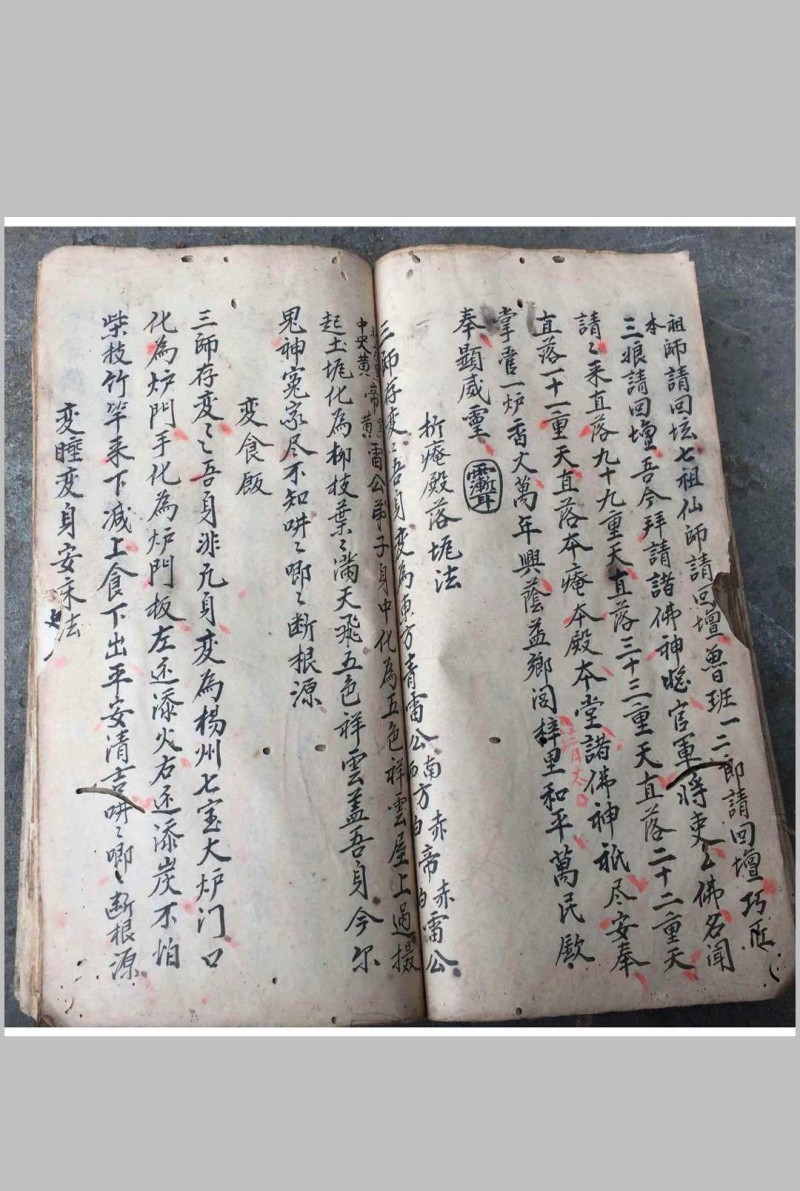 祖師請回坛七祖仙師請回壇魯班一二郎請回壇巧匠
三娘請回壇吾今拜請諸佛神 官軍將吏公佛名闻
本
請〻来直落九十九重天直落三十三重天直落二十二重天
直落一十一重天直落本庵本殿本堂諸佛神祇尽安奉
掌管一炉香火萬年興蔭益鄉闾梓里和平萬民歐
奉顯威灵
折庵殿落坭法
三師存変〻吾身変為東方青雷公南方赤帝赤雷公
西 白 白
中央黄帝黄雷公弟子身中化為五色祥雲屋上過摄
起土坭化為柳枝葉〻滿天飛五色祥雲盖吾身今尔
鬼神寃家尽不知吽〻唧〻断根源
変食飯
三師存変〻吾身非凢身変為楊州七宝大炉门口
化為炉門手化為炉門板左还添火右还添炭不怕
柴枝竹竿来下減上食下出平安清吉吽〻唧〻断根源
変睡変身安床法